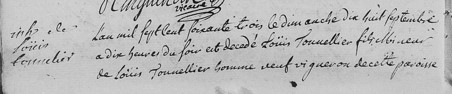 vicaire
inh de
Loüis
tonnelier
L'an mil sept cent soixante trois le dimanche dix huit septembre
a dix heures du soir est decedé Loüis Tonnellier fils mineur
de Loüis Tonnellier homme veuf vigneron de cette paroisse